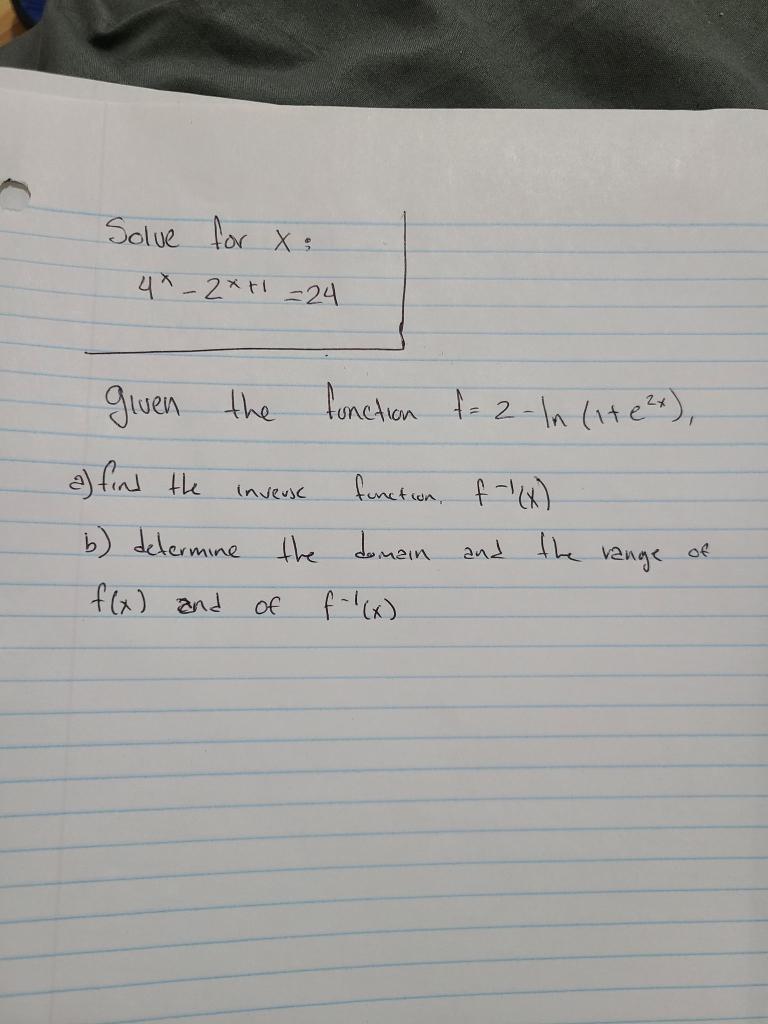 Solve for x:
4^x - 2^{x+1} = 24
given the function f= 2 - ln (1+e^{2x}),
a) find the inverse function, f^{-1}(x)
b) determine the domain and the range of
f(x) and of f^{-1}(x)